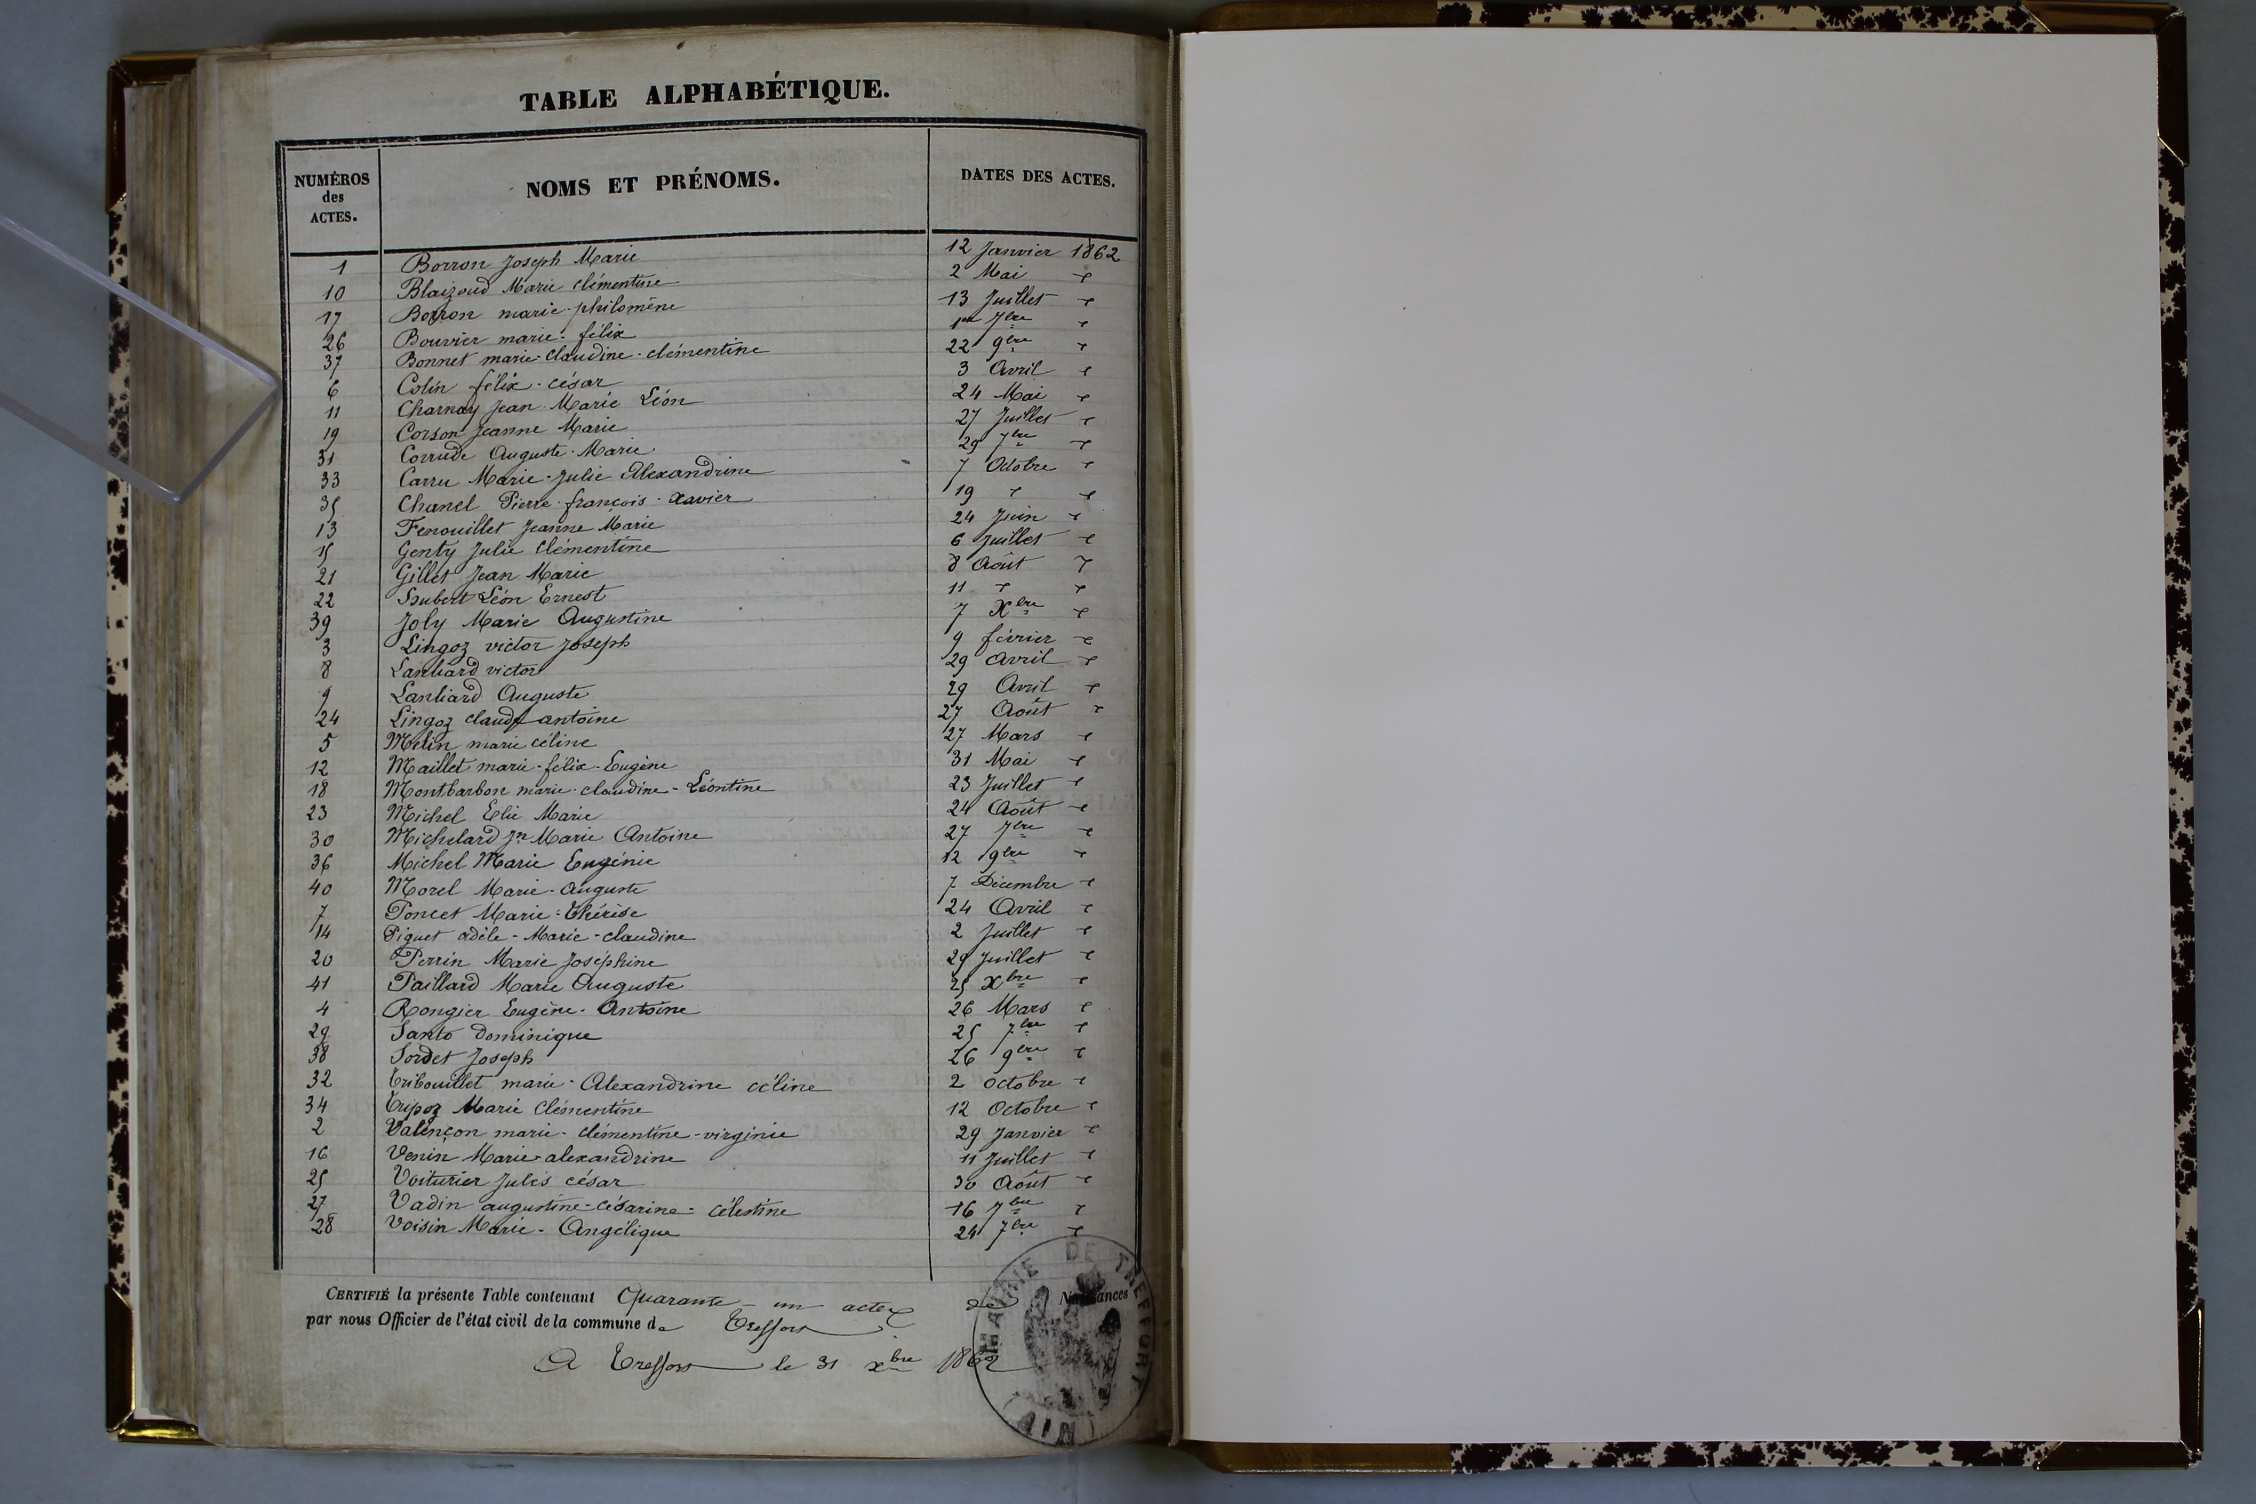 TABLE ALPHABÉTIQUE.
NUMÉROS des ACTES. NOMS ET PRÉNOMS. DATES DES ACTES.
1 Borron Joseph Marie 12 Janvier 1862
10 Blaizoud Marie clémentine 2 Mai "
17 Borron marie-philomène 13 Juillet "
26 Bouvier marie-félix 1er 7bre "
37 Bonnet marie-claudine-clémentine 22 9bre "
6 Colin félix-césar 3 Avril "
11 Charnay Jean-Marie Léon 24 Mai "
19 Corson Jeanne Marie 27 Juillet "
31 Corrude Auguste-Marie 29 7bre "
33 Carru Marie-Julie Alexandrine 7 Octobre "
35 Chanel Pierre-françois-xavier 19 " "
13 Fenouillet Jeanne Marie 24 Juin "
15 Genty Julie Clémentine 6 Juillet "
21 Gillet Jean Marie 8 Août "
22 Hubert Léon Ernest 11 " "
39 Joly Marie Augustine 7 Xbre "
3 Lingoz victor Joseph 9 février "
8 Lanliard victor 29 avril "
9 Lanliard Auguste 29 Avril "
24 Lingoz claude antoine 27 Août "
5 Melin marie céline 27 Mars "
12 Maillet marie-félix-Eugène 31 Mai "
18 Montbarbon marie-claudine-Léontine 23 Juillet "
23 Michel Elie Marie 24 Août "
30 Michelard Jn Marie Antoine 27 7bre "
36 Michel Marie Eugénie 12 9bre "
40 Morel Marie-auguste 7 Décembre "
7 Poncet Marie-Thérèse 24 Avril "
14 Piquet adèle-Marie-claudine 2 Juillet "
20 Perrin Marie Joséphine 29 Juillet "
41 Paillard Marie Auguste 25 Xbre "
4 Rongier Eugène-Antoine 26 Mars "
29 Santo Dominique 25 7bre "
38 Sordet Joseph 26 9bre "
32 Tribouillet marie-Alexandrine céline 2 octobre "
34 Tripoz Marie Clémentine 12 Octobre "
2 Valençon marie-clémentine-virginie 29 Janvier "
16 Venin Marie-alexandrine 11 Juillet "
25 Voiturier Jules césar 30 Août "
27 Vadin augustine-césarine-célestine 16 7bre "
28 Voisin Marie-Angélique 24 7bre "
CERTIFIÉ la présente Table contenant Quarante-un actes de Naissances
par nous Officier de l'état civil de la commune de Treffort
A Treffort le 31 xbre 1862
MAIRIE DE TREFFORT (AIN)